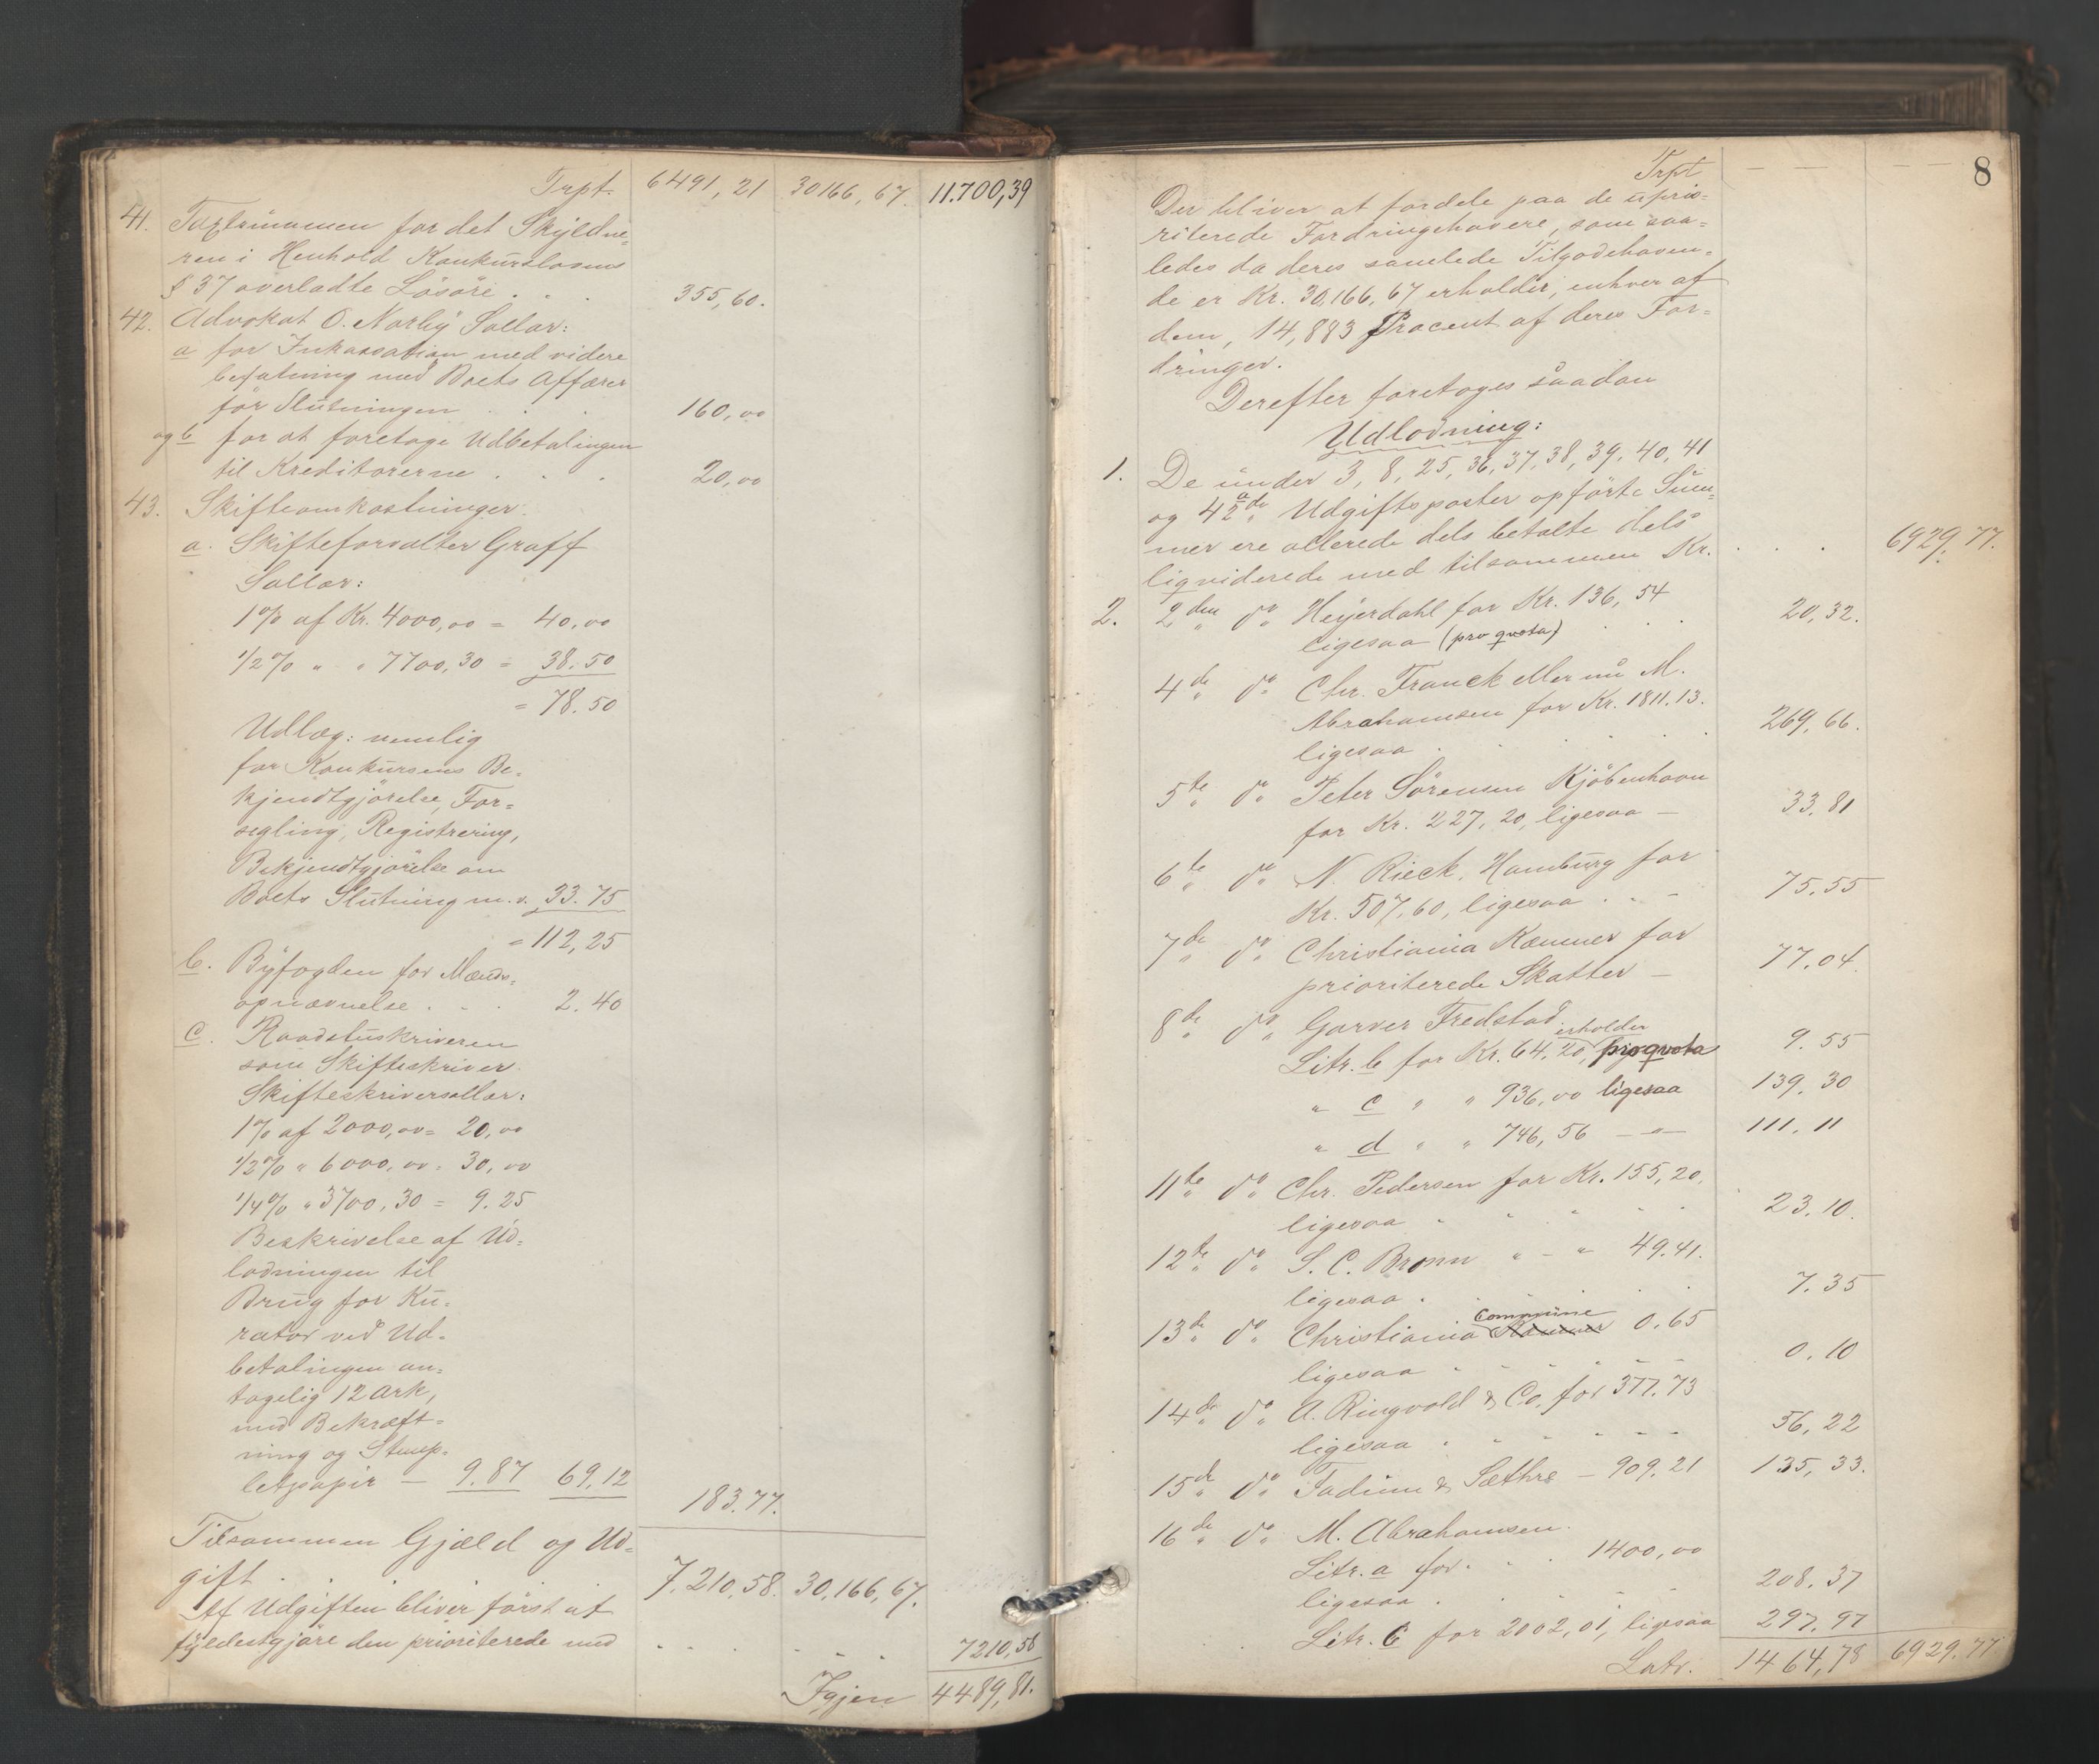 Trpt. 6491,21 30166,67. 11.700,39
41. Taxtsummen for det Skyldne=
ren i Henhold Konkurslovens
§ 37 overladte Lösöre . . . 355,60.
42. Advokat O. Narby Sallar:
a for Inkassation med videre
befatning med Boets Affærer
för Slutningen . . . 160,00
og b for at foretage Udbetalingen
til Kreditorerne . . . 20,00
43. Skifteomkostninger.
a. Skifteforvalter Graff
Sallar:
1% af Kr. 4000,00 = 40,00
1/2% " " 7700,30 = 38.50
= 78.50
Udlæg: nemlig
for Konkursens Be=
kjendtgjörelse, For=
segling, Registrering,
Bekjendtgjörelse om
Boets Slutning m.v. 33.75
= 112,25
b. Byfogden for Mænds=
opnævnelse . . . 2.40
c. Raadstuskriveren
som Skifteskriver.
Skifteskriversallar:
1% af 2000,00 = 20,00
1/2% " 6000,00 = 30,00
1/4% " 3700,30 = 9.25
Beskrivelse af Ud=
lodningen til
Brug for Ku=
rator ved Ud=
betalingen an=
tagelig 12 Ark,
med Bekræft=
ning og Stemp=
letpapir — 9.87 69,12 183.77.
Tilsammen Gjæld og Ud=
gift . . . 7,210,58. 30,166,67.
Af Udgiften bliver först at
fyldestgjöre den prioriterede med . . . 7210,58
Igjen 4489,81.
8
Trpt
Der bliver at fordele paa de uprio=
riterede Fordringshavere, som saa=
ledes da deres samlede Tilgodehaven=
de er Kr. 30,166,67 erholder, enhver af
dem, 14,883 Procent af deres For=
dringer.
Derefter foretages saadan
Udlodning:
1. De under 3, 8, 25, 36, 37, 38, 39, 40, 41
og 42 a de Udgiftsposter opförte Sum=
mer ere allerede dels betalte dels
liqviderede med tilsammen Kr. . . . 6929.77.
2. 2den do Heyerdahl for Kr. 136,54
ligesaa (pro quota) . . . 20,32.
4de do Chr. Franck eller nu M.
Abrahamsen for Kr. 1811.13.
ligesaa . . . 269,66.
5te do Peter Sörensen Kjöbenhavn
for Kr. 227,20, ligesaa — 33.81
6te do N. Rieck, Hamburg for
Kr. 507,60, ligesaa . . - 75.55
7de do Christiania Kæmner for
prioriterede Skatter — 77.04.
8de do Garver Fredstad.
erholder
Litr. b for Kr. 64,20, pro quota 9.55
" c " " 936,00 ligesaa 139,30
" d " " 746,56 —"— 111.11
11te do Chr. Pedersen for Kr. 155,20,
ligesaa . . . 23.10.
12te do S. C. Bronn " - " 49.41.
ligesaa . . . 7.35
Commune
13de do Christiania Kæmner 0.65
ligesaa . . . 0.10
14de do A. Ringvold & Co. for 377.73
ligesaa . . . 56,22
15de do Tadum & Sæthre — 909,21 135,33.
16de do M. Abrahamsen.
Litr. a for . . . 1400,00
ligesaa . . . 208.37
Litr. b for 2002,01, ligesaa 297.97
Latr. 1464,78 6929.77